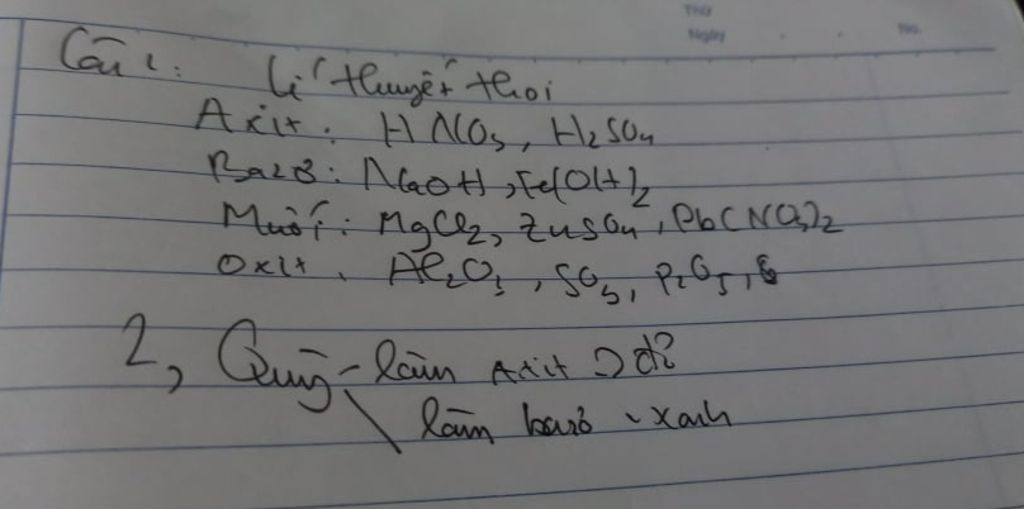 Thứ
Ngày . . No.
Câu 1: Lí thuyết thoi
Axit: HNO₃, H₂SO₄
Bazơ: NaOH, Fe(OH)₂
Muối: MgCl₂, ZnSO₄, Pb(NO₃)₂
Oxit. Al₂O₃, SO₃, P₂O₅,
2, Quỳ - làm Axit → đỏ
làm bazơ - xanh